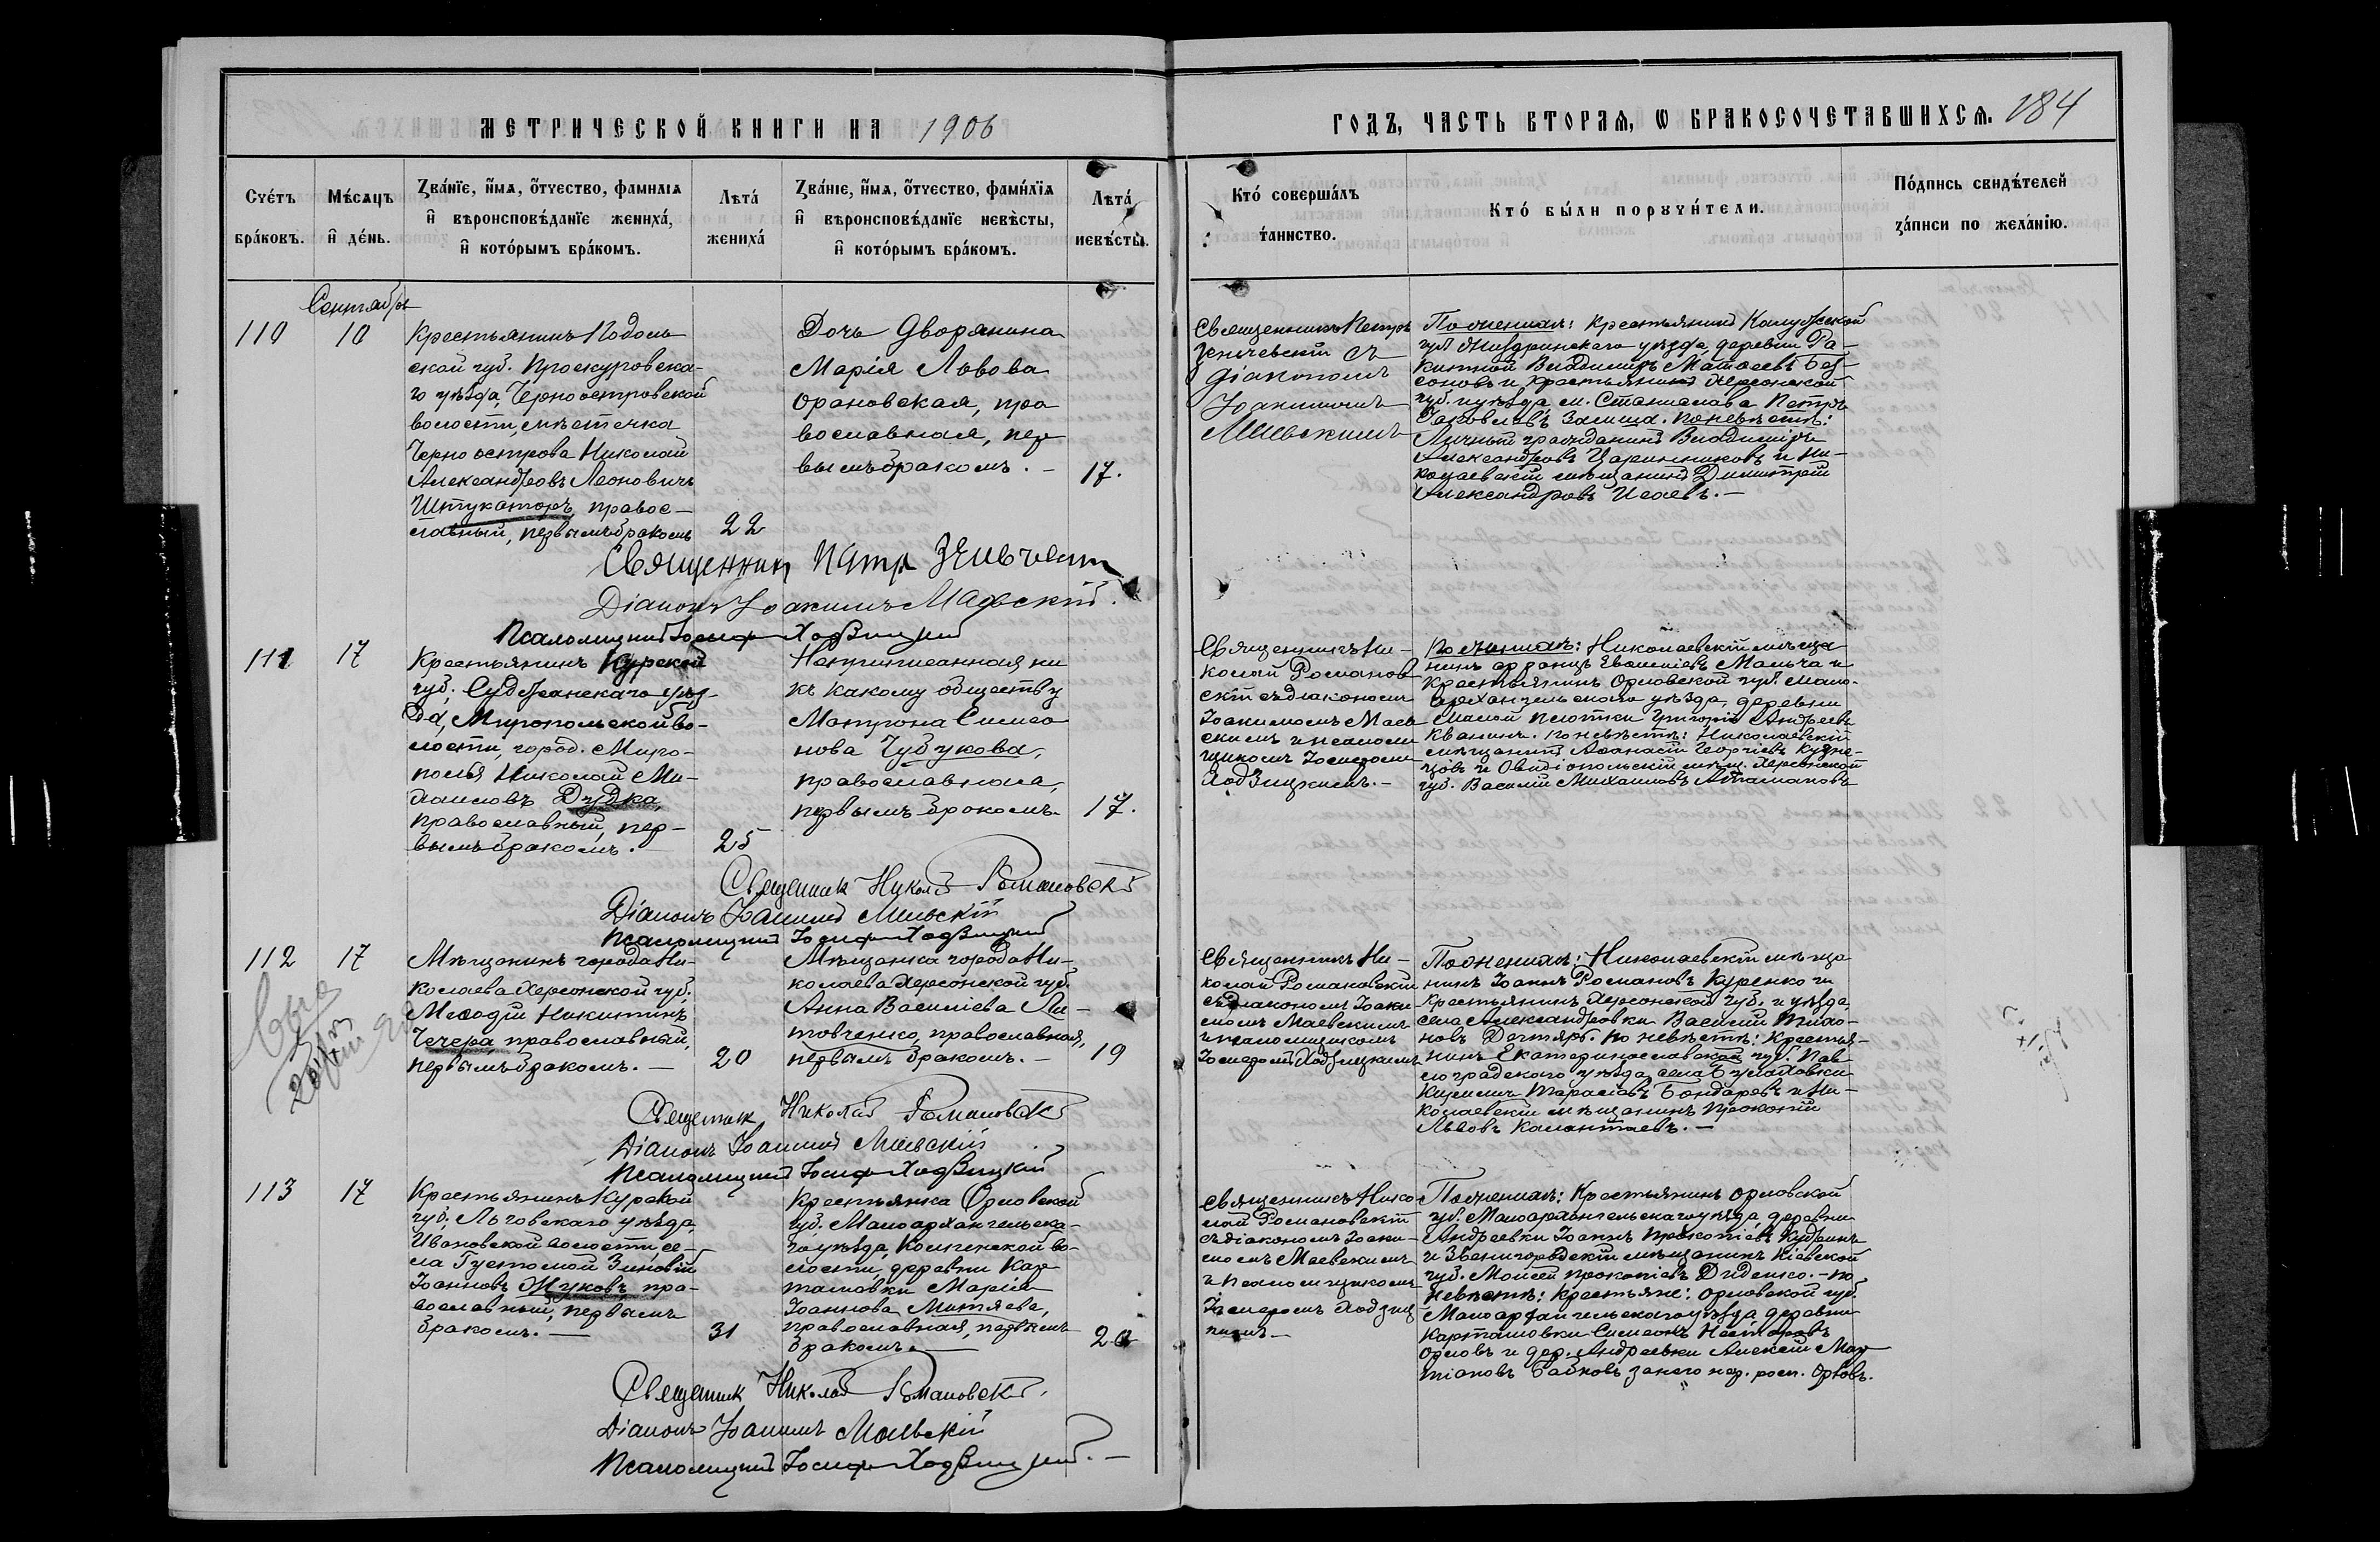 МЕТРИЧЕСКОЙ КНИГИ НА 1906
ГОДЪ, ЧАСТЬ ВТОРАЯ, Ѡ БРАКОСОЧЕТАВШИХСЯ. 184
Счетъ браковъ.
Мѣсяцъ и день.
Званіе, имя, отчество, фамилія
и вѣроисповѣданіе жениха,
и которымъ бракомъ.
Лѣта
жениха
Званіе, имя, отчество, фамилія
и вѣроисповѣданіе невѣсты,
и которымъ бракомъ.
Лѣта
невѣсты.
Кто совершалъ
таинство.
Кто были поручители.
Подпись свидѣтелей
записи по желанію.
Сентябрь
110
10
Крестьянинъ Подоль
ской губ. Проскуровска-
го уѣзда, Черноостровской
волости, мѣстечка
Черно острова Николай
Александровъ Леоновичъ
Штукаторъ, правос-
лавный, первымъ бракомъ
22
Дочь Дворянина
Марія Львова
Орановская, пра
вославная, пер
вымъ бракомъ. -
17.
Священникъ Петръ
съ
діакономъ
Іоакимомъ
Маевскимъ
По женихѣ: Крестьянинъ Калужской
губ. Жиздринскаго уѣзда, деревни Ра-
китной Владиміръ Матѳеевъ Без-
соновъ и крестьянинъ Херсонской
губ. и уѣзда м. Станислава Петръ
Яковлевъ Залища. По невѣстѣ:
Личный гражданинъ Владиміръ
Александровъ Царинниковъ и Ни-
колаевскій мѣщанинъ Димитрій
Александровъ Исаевъ. -
Священникъ Петръ
Діаконъ Іоакимъ Маевскій.
Псаломщикъ Іосифъ Ходзицкій
111
17
Крестьянинъ Курской
губ. Суджанскаго уѣз-
да, Миропольской во-
лости, город. Миро-
полья Николай Ми-
хаиловъ Дудка,
православный, пер-
вымъ бракомъ.
25
Неприписанная ни
къ какому обществу
Матрона Симео
нова Чубукова,
православная,
первымъ бракомъ.
17.
Священникъ Ни-
колай Романов
скій съ діакономъ
Іоакимомъ Маев
скимъ и псалом
щикомъ Іосифомъ
Ходзицкимъ. -
По женихѣ: Николаевскій мѣща
нинъ Евѳиміевъ Мальча и
Крестьянинъ Орловской губ. Мало-
архангельскаго уѣзда, деревни
Малой Плотки Григорій Андреевъ
Квапинъ. По невѣстѣ: Николаевскій
мѣщанинъ Аѳанасій Георгіевъ Кузне-
цовъ и Овидіопольскій мѣщ. Херсонской
губ. Василій Михаиловъ Атамановъ
Священникъ Николай Романовскій
Діаконъ Іоакимъ Маевскій
Псаломщикъ Іосифъ Ходзицкій
112
17
Мѣщанинъ города Ни-
колаева Херсонской губ.
Меѳодій Никитинъ
Чечера православный,
первымъ бракомъ. -
20
Мѣщанка города Ни-
колаева Херсонской губ.
Анна Василіева Ли-
товченко, православная,
первымъ бракомъ. -
19
Священникъ Ни-
колай Романовскій
съ діакономъ Іоаки-
момъ Маевскимъ
и псаломщикомъ
Іосифомъ Ходзицкимъ
По женихѣ: Николаевскій мѣща
нинъ Іоаннъ Романовъ Куренко и
крестьянинъ Херсонской губ. и уѣзда,
села Александровки Василій Тихо-
новъ Дегтярь. По невѣстѣ: Крестья-
нинъ Екатеринославской губ. Пав-
лоградскаго уѣзда, села Булаховки
Кириллъ Тарасіевъ Бондаревъ и Ни-
колаевскій мѣщанинъ Прокопій
Львовъ Калантаевъ. -
Священникъ Николай Романовскій
Діаконъ Іоакимъ Маевскій
Псаломщикъ Іосифъ Ходзицкій
113
17
Крестьянинъ Курской
губ. Льговскаго уѣзда,
Ивановской волости, се-
ла Густомой Зиновій
Іоанновъ Жуковъ, пра-
вославный, первымъ
бракомъ. -
31
Крестьянка Орловской
губ. Малоархангельска-
го уѣзда, во-
лости, деревни Кар
ташовки Марія
Іоаннова Митяева,
православная, первымъ
бракомъ. -
Священникъ Нико
лай Романовскій
съ діакономъ Іоаки-
момъ Маевскимъ
и псаломщикомъ
Іосифомъ Ходзиц
кимъ -
По женихѣ: Крестьянинъ Орловской
губ. Малоархангельскаго уѣзда, деревни
Андреевки Іоаннъ Прокопіевъ Кудринъ
и Звенигородскій мѣщанинъ Кіевской
губ. Моисей Прокопіевъ Диденко. - По
невѣстѣ: Крестьяне: Орловской губ.
Малоархангельскаго уѣзда, деревни
Карташовки Симеонъ Несторовъ
Орловъ и дер. Андреевки Алексій Мар
тіановъ Байковъ за него нер. росп. Орловъ.
Священникъ Николай Романовскій
Діаконъ Іоакимъ Маевскій
Псаломщикъ Іосифъ Ходзицкій. -